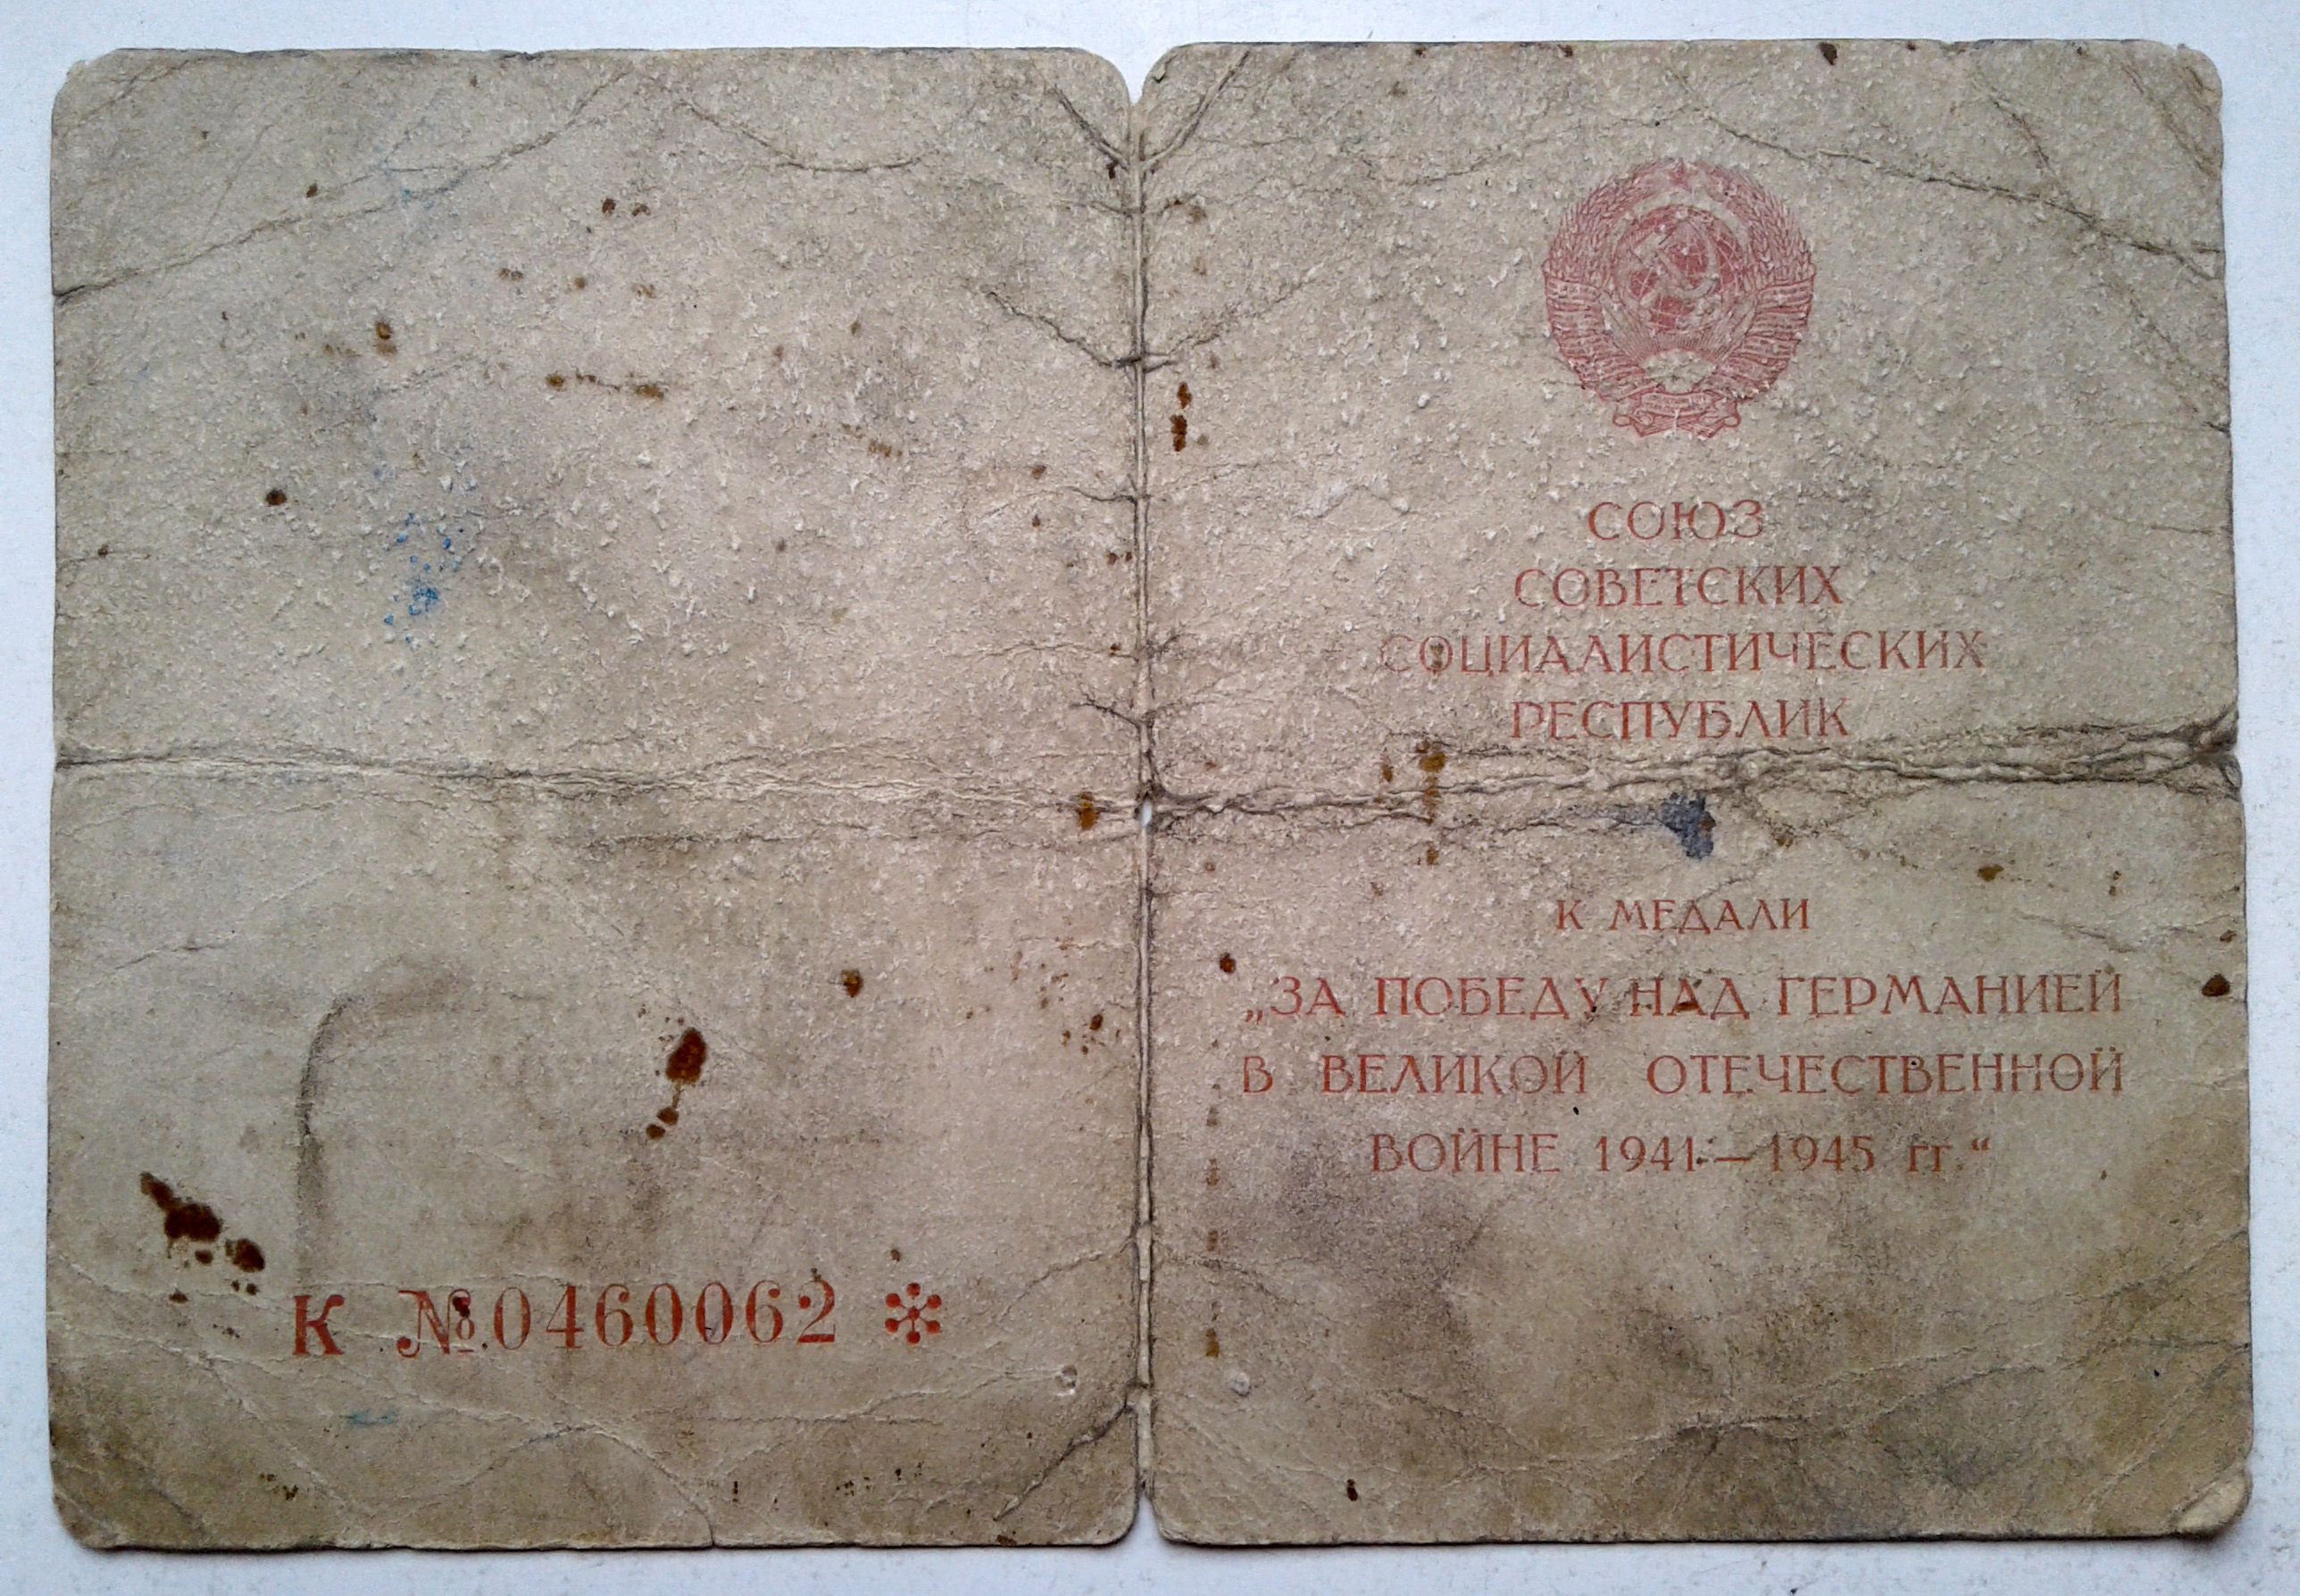 К №0460062
СОЮЗ
СОВЕТСКИХ
СОЦИАЛИСТИЧЕСКИХ
РЕСПУБЛИК
К МЕДАЛИ
„ЗА ПОБЕДУ НАД ГЕРМАНИЕЙ
В ВЕЛИКОЙ ОТЕЧЕСТВЕННОЙ
ВОЙНЕ 1941—1945 гг.“